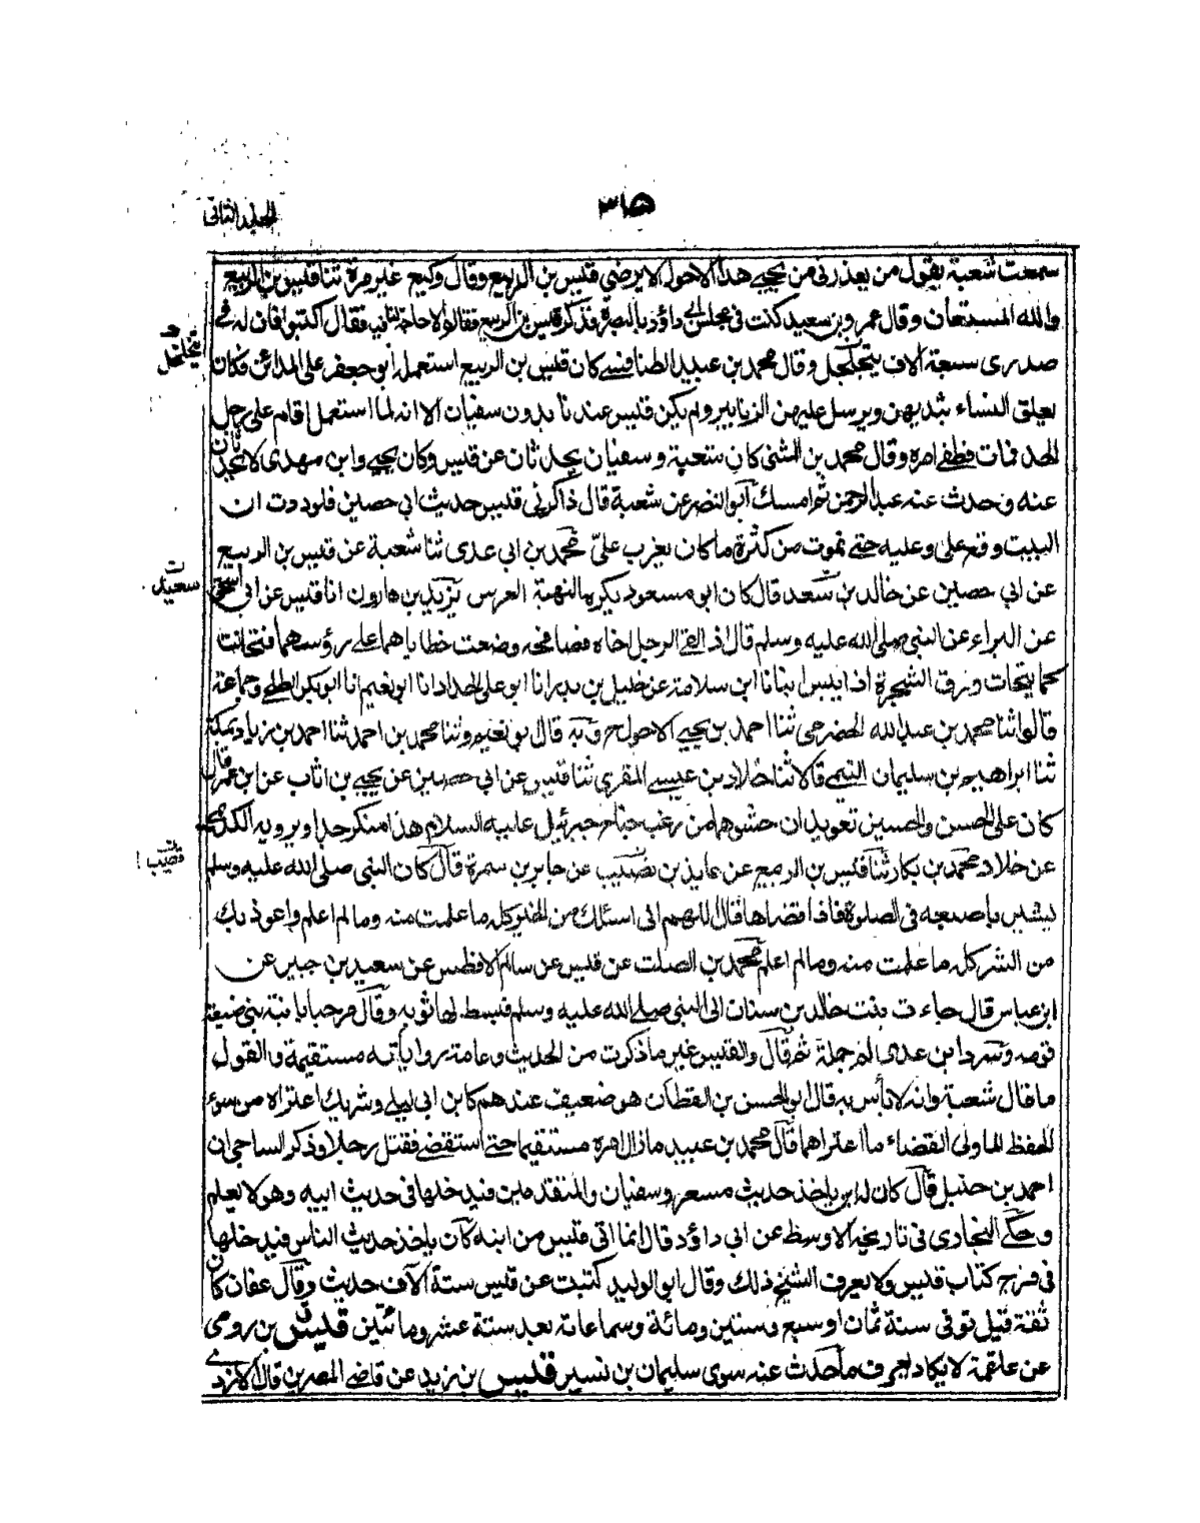 الجلد الثاني
٣٥١
سمعت شعبة يقول من يعذرني من يحيى هذا الاحول لا يرضى قيس بن الربيع وقال وكيع غير مرة ثنا قيس بن الربيع
والله المستعان وقال عمرو بن سعيد كنت في مجلس ابي داؤد بالبصرة فذكر قيس بن الربيع فقالوا لا حاجة لنا فيه فقال اكتبوا فان له في
صدرى سبعة الاف يتجلجل وقال محمد بن عبيد الطنافسي كان قيس بن الربيع استعمله ابو جعفر على المدائن فكان
يعلق النساء بثديهن ويرسل عليهن الزنابير ولم يكن قيس عندنا بدون سفيان الا انه لما استعمل اقام على رجل
الحد فمات فطفى امره وقال محمد بن المثنى كان شعبة وسفيان يحدثان عن قيس وكان يحيى وابن مهدى لا يحدثان
عنه وحدث عنه عبد الرحمن ثم امسك ابو النضر عن شعبة قال ذاكرنى قيس حديث ابي حصين فلوددت ان
البيت وقع على وعليه حتى نموت من كثرة ما كان يغرب علىّ محمد بن ابي عدى ثنا شعبة عن قيس بن الربيع
عن ابي حصين عن خالد بن سعد قال كان ابو مسعود يكره النهبة العرس يزيد بن هارون انا قيس عن ابي اسحق
عن البراء عن النبي صلى الله عليه وسلم قال اذا لقي الرجل اخاه فصافحه وضعت خطاياهما على رؤسهما فتحاتت
كما يتحات ورق الشجرة اذا يبس انبانا ابن سلامة عن خليل بن بدر انا ابو على الحداد انا ابو نعيم انا ابو بكر الطلحي وجماعة
قالوا ثنا محمد بن عبد الله الحضرمى ثنا احمد بن يحيى الاحول ح وبه قال ابو نعيم وثنا محمد بن احمد ثنا احمد بن زياد بمكة
ثنا ابراهيم بن سليمان التيمى قالا ثنا خلاد بن عيسى المقرى ثنا قيس عن ابي حصين عن يحيى بن وثاب عن ابن عمر قال
كان على الحسن والحسين تعويذان حشوهما من زغب جناح جبرئيل عليه السلام هذا منكر جدا ويرويه الكديمى
عن خلاد محمد بن بكار ثنا قيس بن الربيع عن عايذ بن نصيب عن جابر بن سمرة قال كان النبي صلى الله عليه وسلم
يشير باصبعه في الصلوة فاذا قضاها قال اللهم انى اسئلك من الخير كله ما علمت منه وما لم اعلم واعوذ بك
من الشر كله ما علمت منه وما لم اعلم محمد بن الصلت عن قيس عن سالم الافطس عن سعيد بن جبير عن
ابن عباس قال جاءت بنت خالد بن سنان الى النبي صلى الله عليه وسلم فبسط لها ثوبه وقال مرحبا بابنة نبي ضيعه
قومه وسرد ابن عدى له جملة ثم قال ولقيس غير ما ذكرت من الحديث وعامة رواياته مستقيمة والقول
ما قال شعبة وانه لا بأس به قال ابو الحسن بن القطان هو ضعيف عندهم كابن ابي ليلى وشريك اعتراه من سوء
الحفظ لما ولى القضاء ما اعتراهما قال محمد بن عبيد ما زال امره مستقيما حتى استقضى فقتل رجلا وذكر الساجى ان
احمد بن حنبل قال كان له ابن ياخذ حديث مسعر وسفيان والمتقدمين فيدخلها في حديث ابيه وهو لا يعلم
وحكى البخارى في تاريخه الاوسط عن ابي داؤد قال انما اتى قيس من ابنه كان ياخذ حديث الناس فيدخلها
في فرج كتاب قيس ولا يعرف الشيخ ذلك وقال ابو الوليد كتبت عن قيس ستة الآف حديث وقال عفان كان
ثقة قيل توفي سنة ثمان او سبع وستين ومائة وسماعاته بعد ستة عشر ومائتين قيس بن رومى
عن علقمة لا يكاد يعرف ما حدث عنه سوى سليمان بن نسير قيس بن زيد عن قاضى المصرين قال الازدى
يتجلجل
سعيد
قصيب